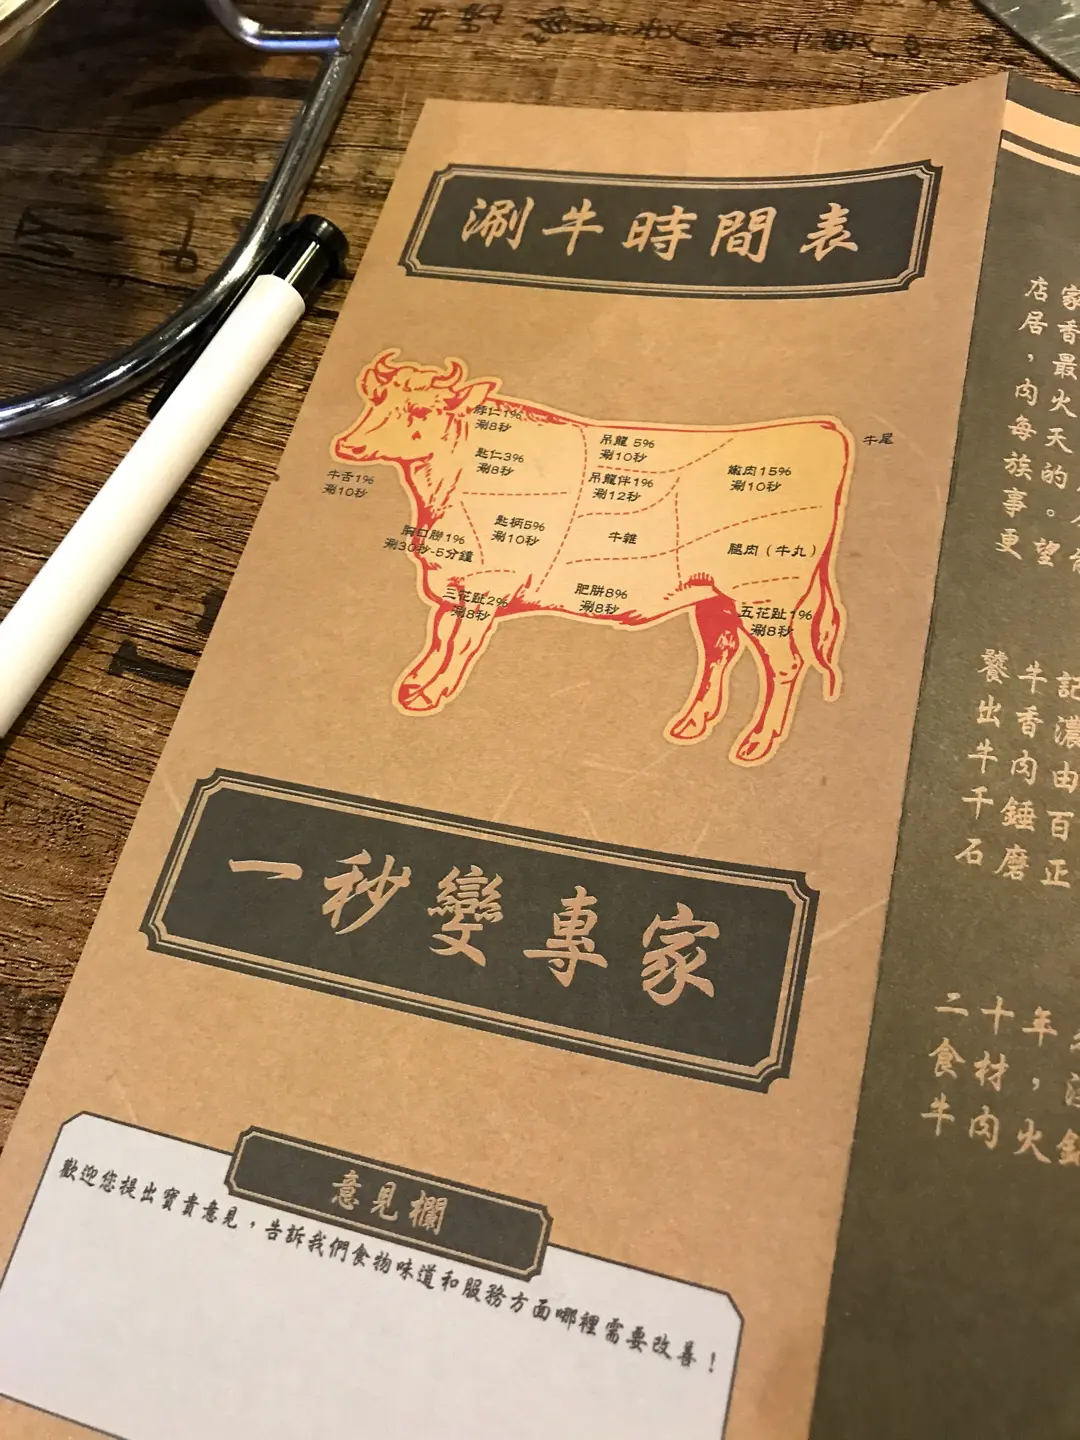 涮牛時間表
脖仁1%
涮8秒
匙仁3%
涮8秒
牛舌1%
涮10秒
匙柄5%
涮10秒
胸口膀1%
涮30秒-5分鐘
三花趾2%
涮8秒
吊龍 5%
涮10秒
吊龍伴1%
涮12秒
牛雜
肥胼8%
涮8秒
嫩肉15%
涮10秒
腿肉（牛丸）
五花趾1%
涮8秒
牛尾
一秒變專家
意見欄
歡迎您提出寶貴意見，告訴我們食物味道和服務方面哪裡需要改善！
家香最火天的。望
店居，肉每族事更
記濃由百正
牛香肉錘磨
饕出牛千石
二十年
食材，注
牛肉火鍋